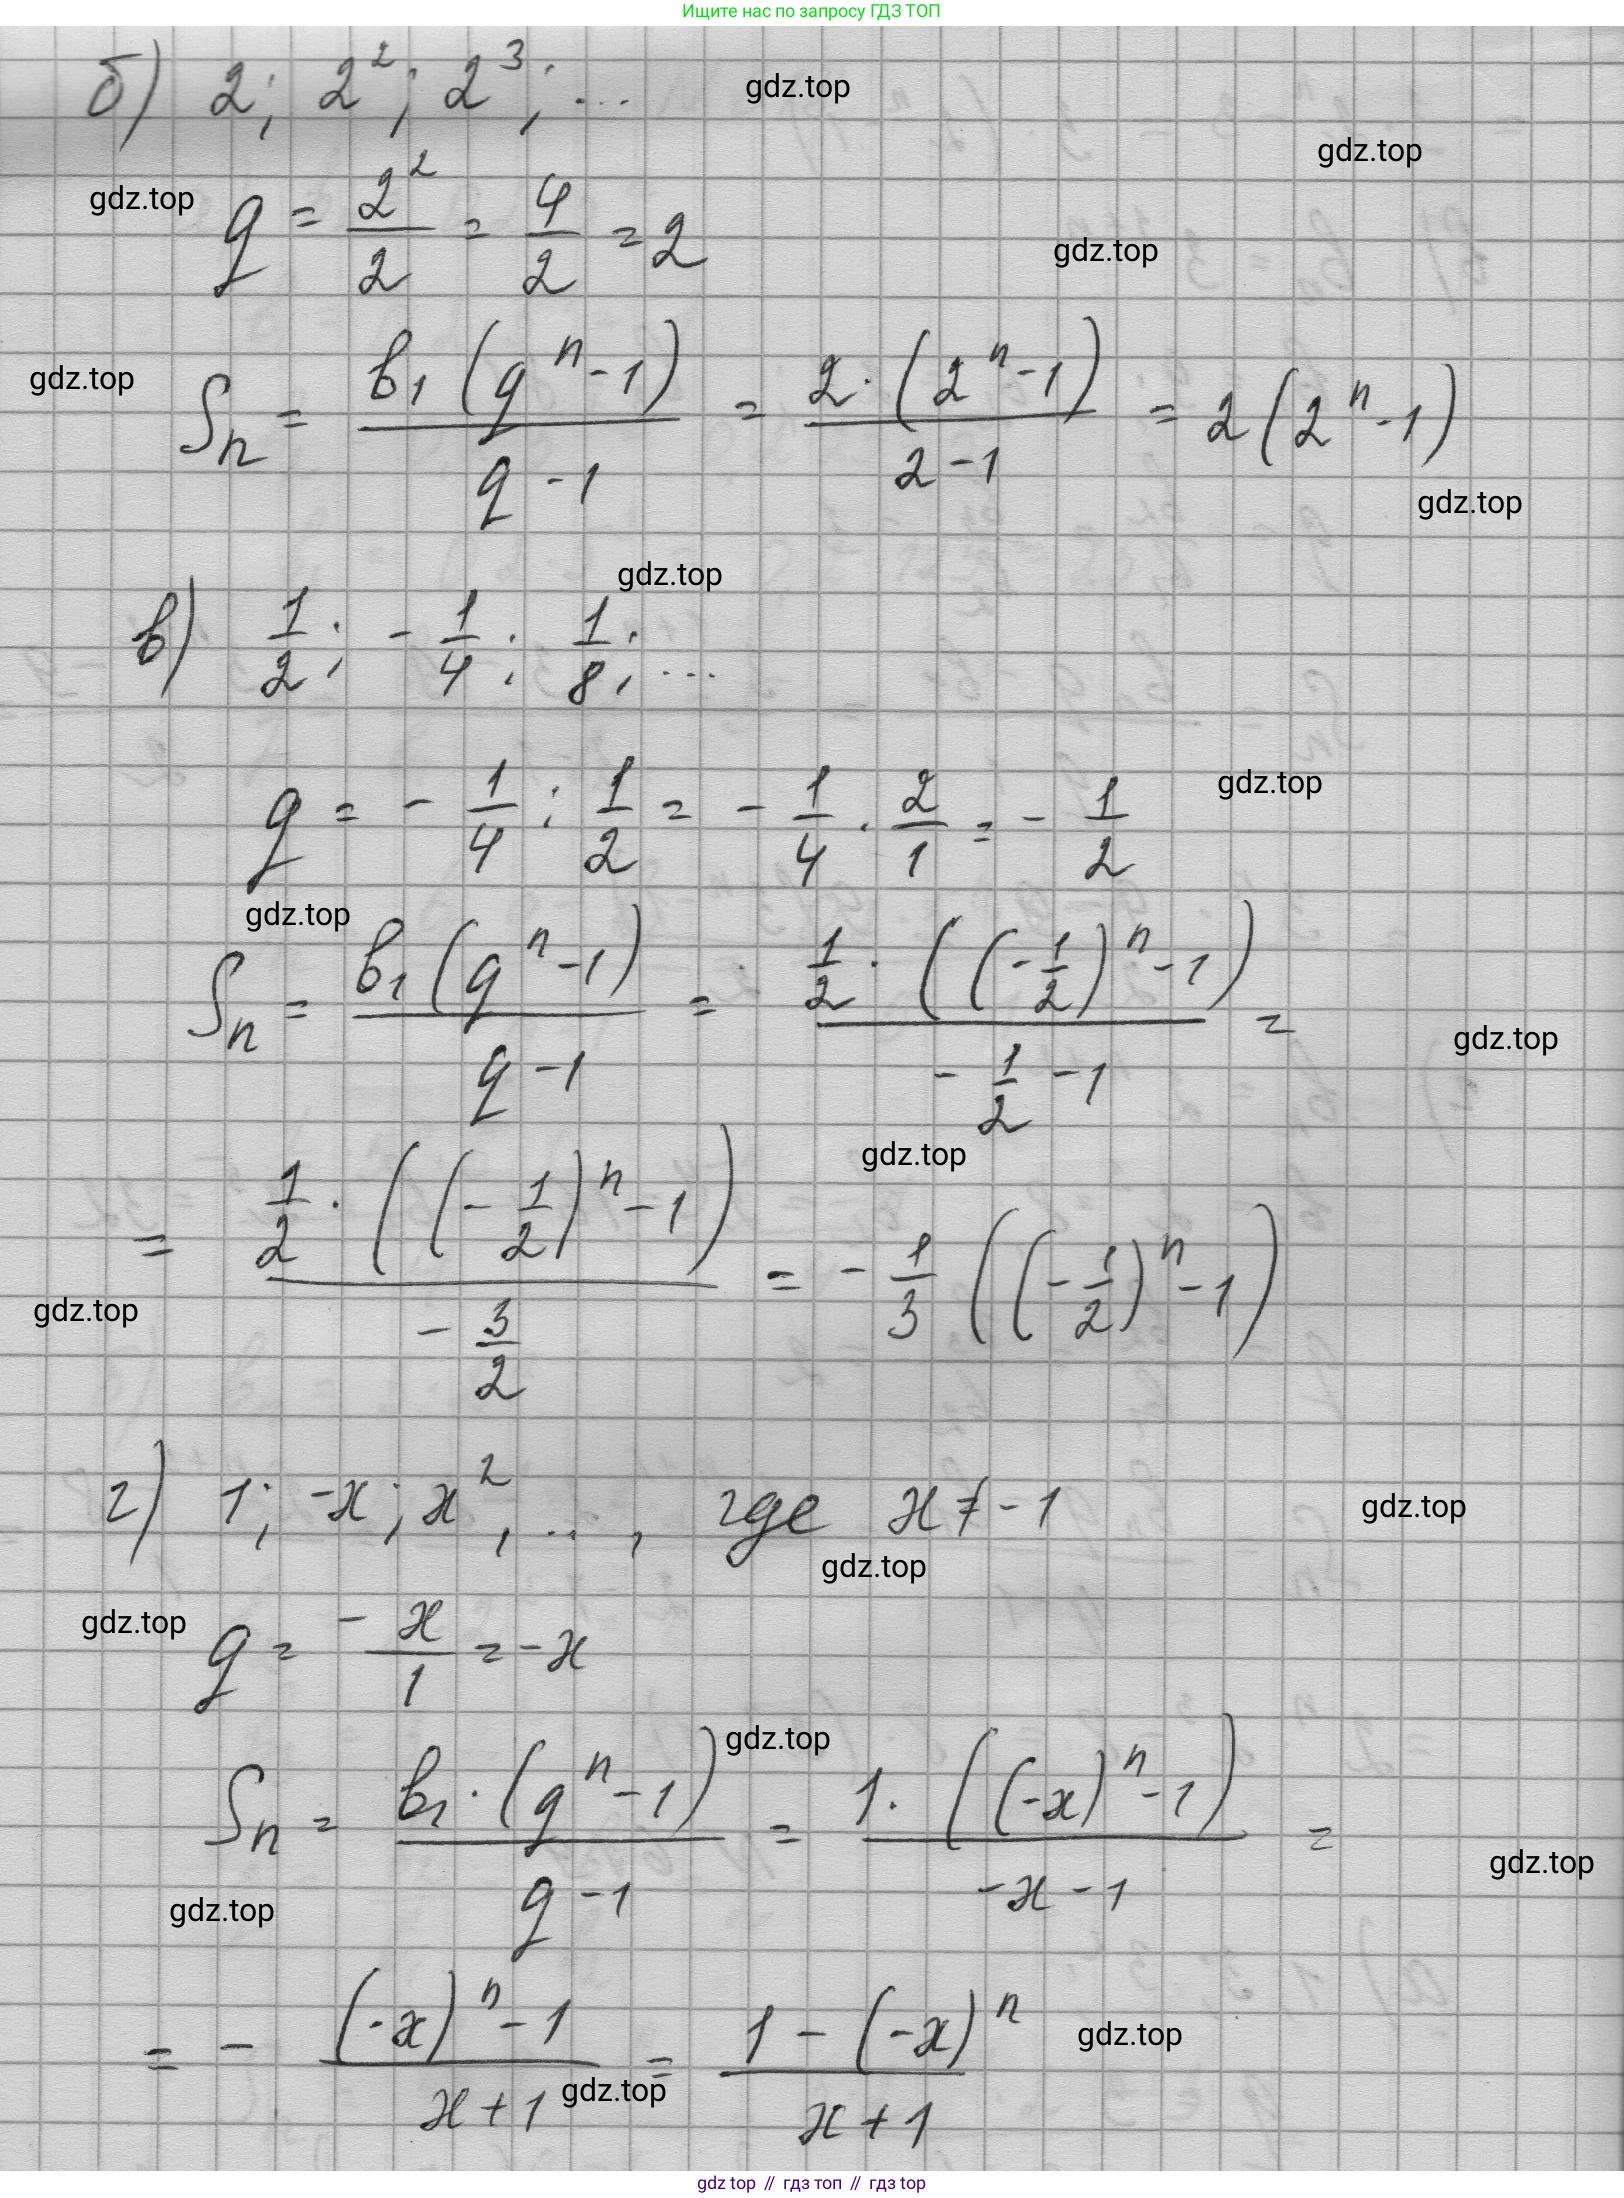 Ищите нас по запросу ГДЗ ТОП
б) 2; 2²; 2³; ...
gdz.top
gdz.top
gdz.top
q = 2²/2 = 4/2 = 2
gdz.top
gdz.top
Sₙ = b₁(qⁿ-1)/(q-1) = 2·(2ⁿ-1)/(2-1) = 2(2ⁿ-1)
gdz.top
gdz.top
в) 1/2; -1/4; 1/8; ...
gdz.top
q = -1/4 : 1/2 = -1/4 · 2/1 = -1/2
gdz.top
Sₙ = b₁(qⁿ-1)/(q-1) = 1/2·((-1/2)ⁿ-1)/(-1/2-1) =
gdz.top
gdz.top
= 1/2·((-1/2)ⁿ-1)/(-3/2) = -1/3((-1/2)ⁿ-1)
gdz.top
г) 1; -x; x², ..., где x ≠ -1
gdz.top
gdz.top
gdz.top
q = -x/1 = -x
gdz.top
Sₙ = b₁·(qⁿ-1)/(q-1) = 1·((-x)ⁿ-1)/(-x-1) =
gdz.top
gdz.top
= -((-x)ⁿ-1)/(x+1) = (1-(-x)ⁿ)/(x+1)
gdz.top
gdz.top
gdz top // гдз топ // gdz top